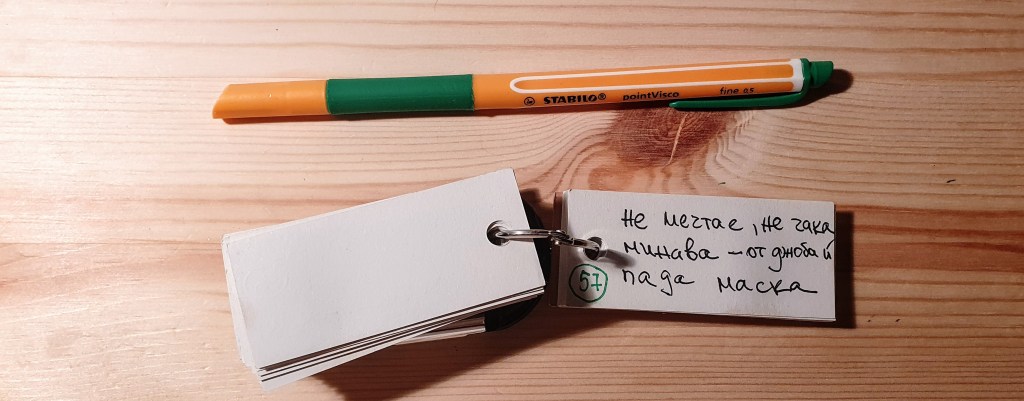 STABILO® pointVisco fine 0.5
не мечтае, не чака
минава – от джоба й
пада маска
57